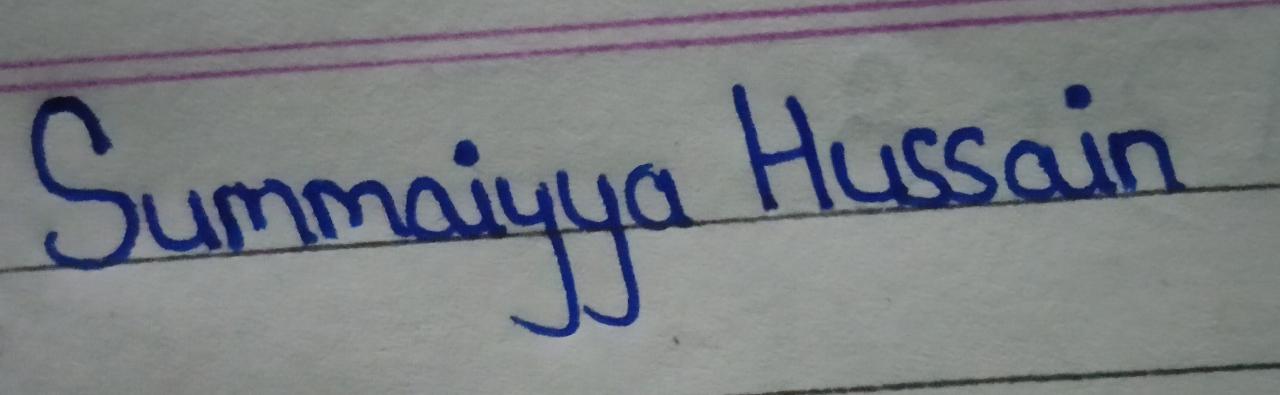 Summaiyya Hussain